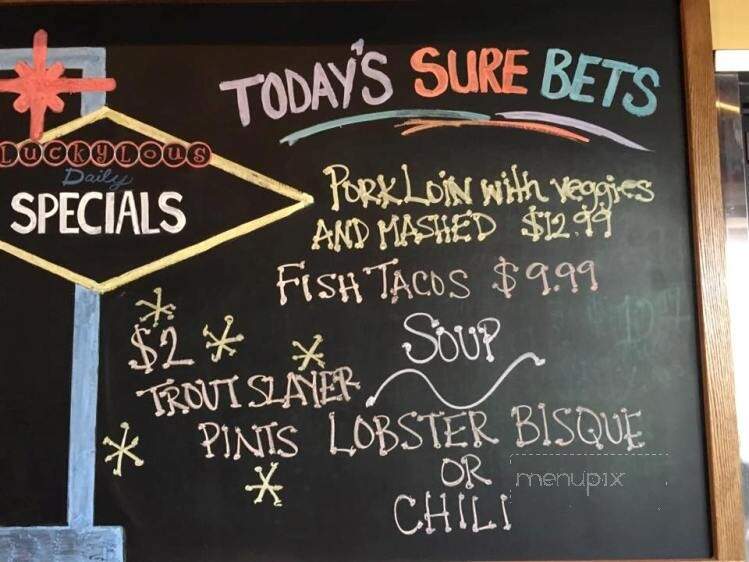 TODAY'S SURE BETS
LuckyLous
Daily
SPECIALS
PORK LOIN with veggies
AND MASHED $12.99
FISH TACOS $9.99
$2
TROUT SLAYER
PINTS
SOUP
LOBSTER BISQUE
OR
CHILI
menupix